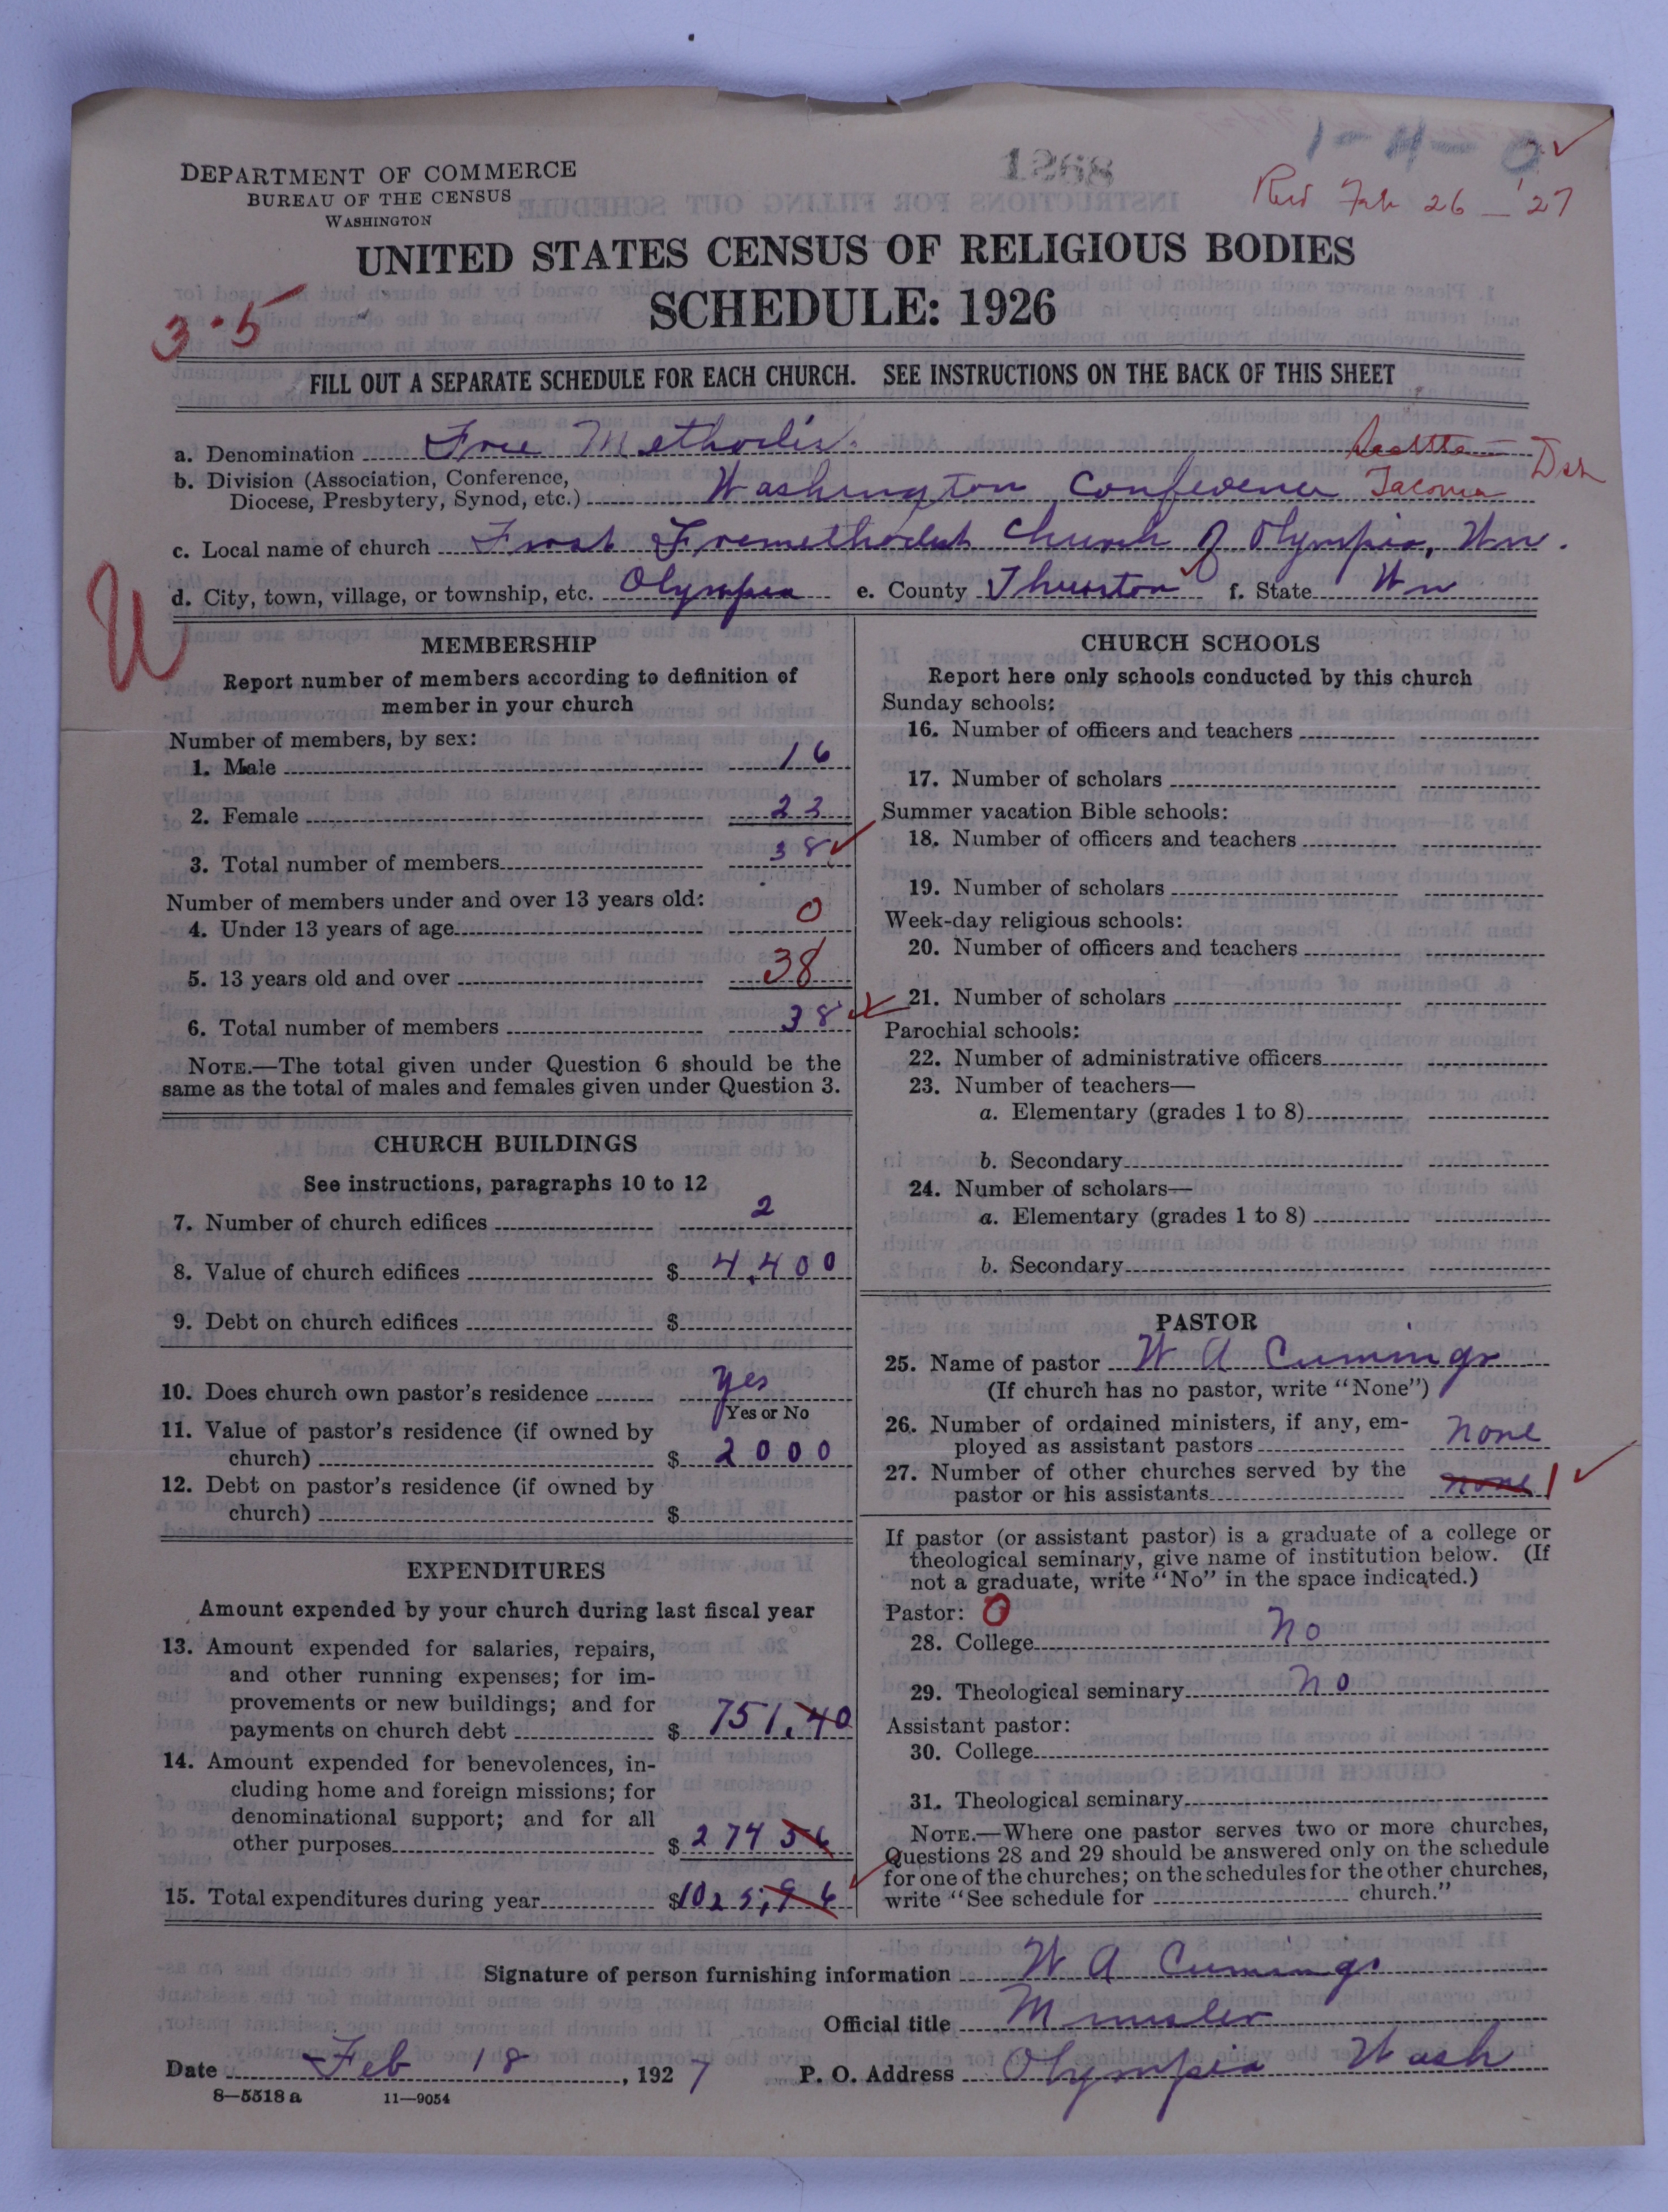 1-4-0
1268
DEPARTMENT OF COMMERCE
BUREAU OF THE CENSUS
WASHINGTON
Feb 26 - '27
UNITED STATES CENSUS OF RELIGIOUS BODIES
SCHEDULE: 1926
3-5
FILL OUT A SEPARATE SCHEDULE FOR EACH CHURCH. SEE INSTRUCTIONS ON THE BACK OF THIS SHEET
a. Denomination Free Methodist Seattle
b. Division (Association, Conference,
Diocese, Presbytery, Synod, etc.) Washington Conference Tacoma
c. Local name of church First Freemethodist Church of Olympia, Wn.
d. City, town, village, or township, etc. Olympia e. County Thurston f. State Wn
MEMBERSHIP
Report number of members according to definition of
member in your church
Number of members, by sex:
1. Male 16
2. Female 22
3. Total number of members 38
Number of members under and over 13 years old:
4. Under 13 years of age 0
5. 13 years old and over 38
6. Total number of members 38
NOTE.—The total given under Question 6 should be the
same as the total of males and females given under Question 3.
CHURCH BUILDINGS
See instructions, paragraphs 10 to 12
7. Number of church edifices 2
8. Value of church edifices $ 4,400
9. Debt on church edifices $
10. Does church own pastor's residence yes
Yes or No
11. Value of pastor's residence (if owned by
church) $ 2000
12. Debt on pastor's residence (if owned by
church) $
EXPENDITURES
Amount expended by your church during last fiscal year
13. Amount expended for salaries, repairs,
and other running expenses; for im-
provements or new buildings; and for
payments on church debt $ 751.40
14. Amount expended for benevolences, in-
cluding home and foreign missions; for
denominational support; and for all
other purposes $ 274 56
15. Total expenditures during year $1025,96
CHURCH SCHOOLS
Report here only schools conducted by this church
Sunday schools:
16. Number of officers and teachers
17. Number of scholars
Summer vacation Bible schools:
18. Number of officers and teachers
19. Number of scholars
Week-day religious schools:
20. Number of officers and teachers
21. Number of scholars
Parochial schools:
22. Number of administrative officers
23. Number of teachers—
a. Elementary (grades 1 to 8)
b. Secondary
24. Number of scholars—
a. Elementary (grades 1 to 8)
b. Secondary
PASTOR
25. Name of pastor W A Cummings
(If church has no pastor, write "None")
26. Number of ordained ministers, if any, em-
ployed as assistant pastors none
27. Number of other churches served by the
pastor or his assistants none 1
If pastor (or assistant pastor) is a graduate of a college or
theological seminary, give name of institution below. (If
not a graduate, write "No" in the space indicated.)
Pastor: 0
28. College no
29. Theological seminary no
Assistant pastor:
30. College
31. Theological seminary
NOTE.—Where one pastor serves two or more churches,
Questions 28 and 29 should be answered only on the schedule
for one of the churches; on the schedules for the other churches,
write "See schedule for church."
Signature of person furnishing information W A Cummings
Official title Minister
Date Feb 18, 1927 P. O. Address Olympia Wash
8—5518 a 11—9054